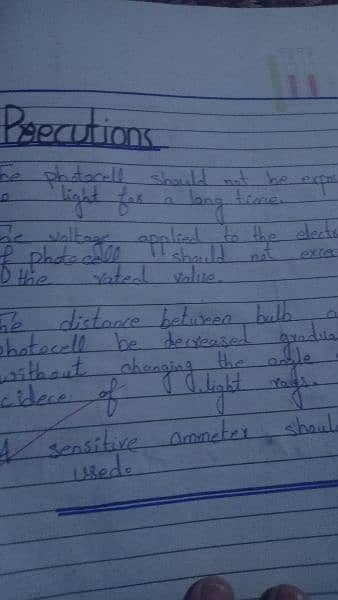 Precutions
he photocell should not be expo
o light for a long time.
he voltage applied to the electr
f photocell should not excee
the rated value.
he distance between bulb a
photocell be decreased gradua
without changing the angle
cidece of light rays.
A sensitive ammeter shoul
used.